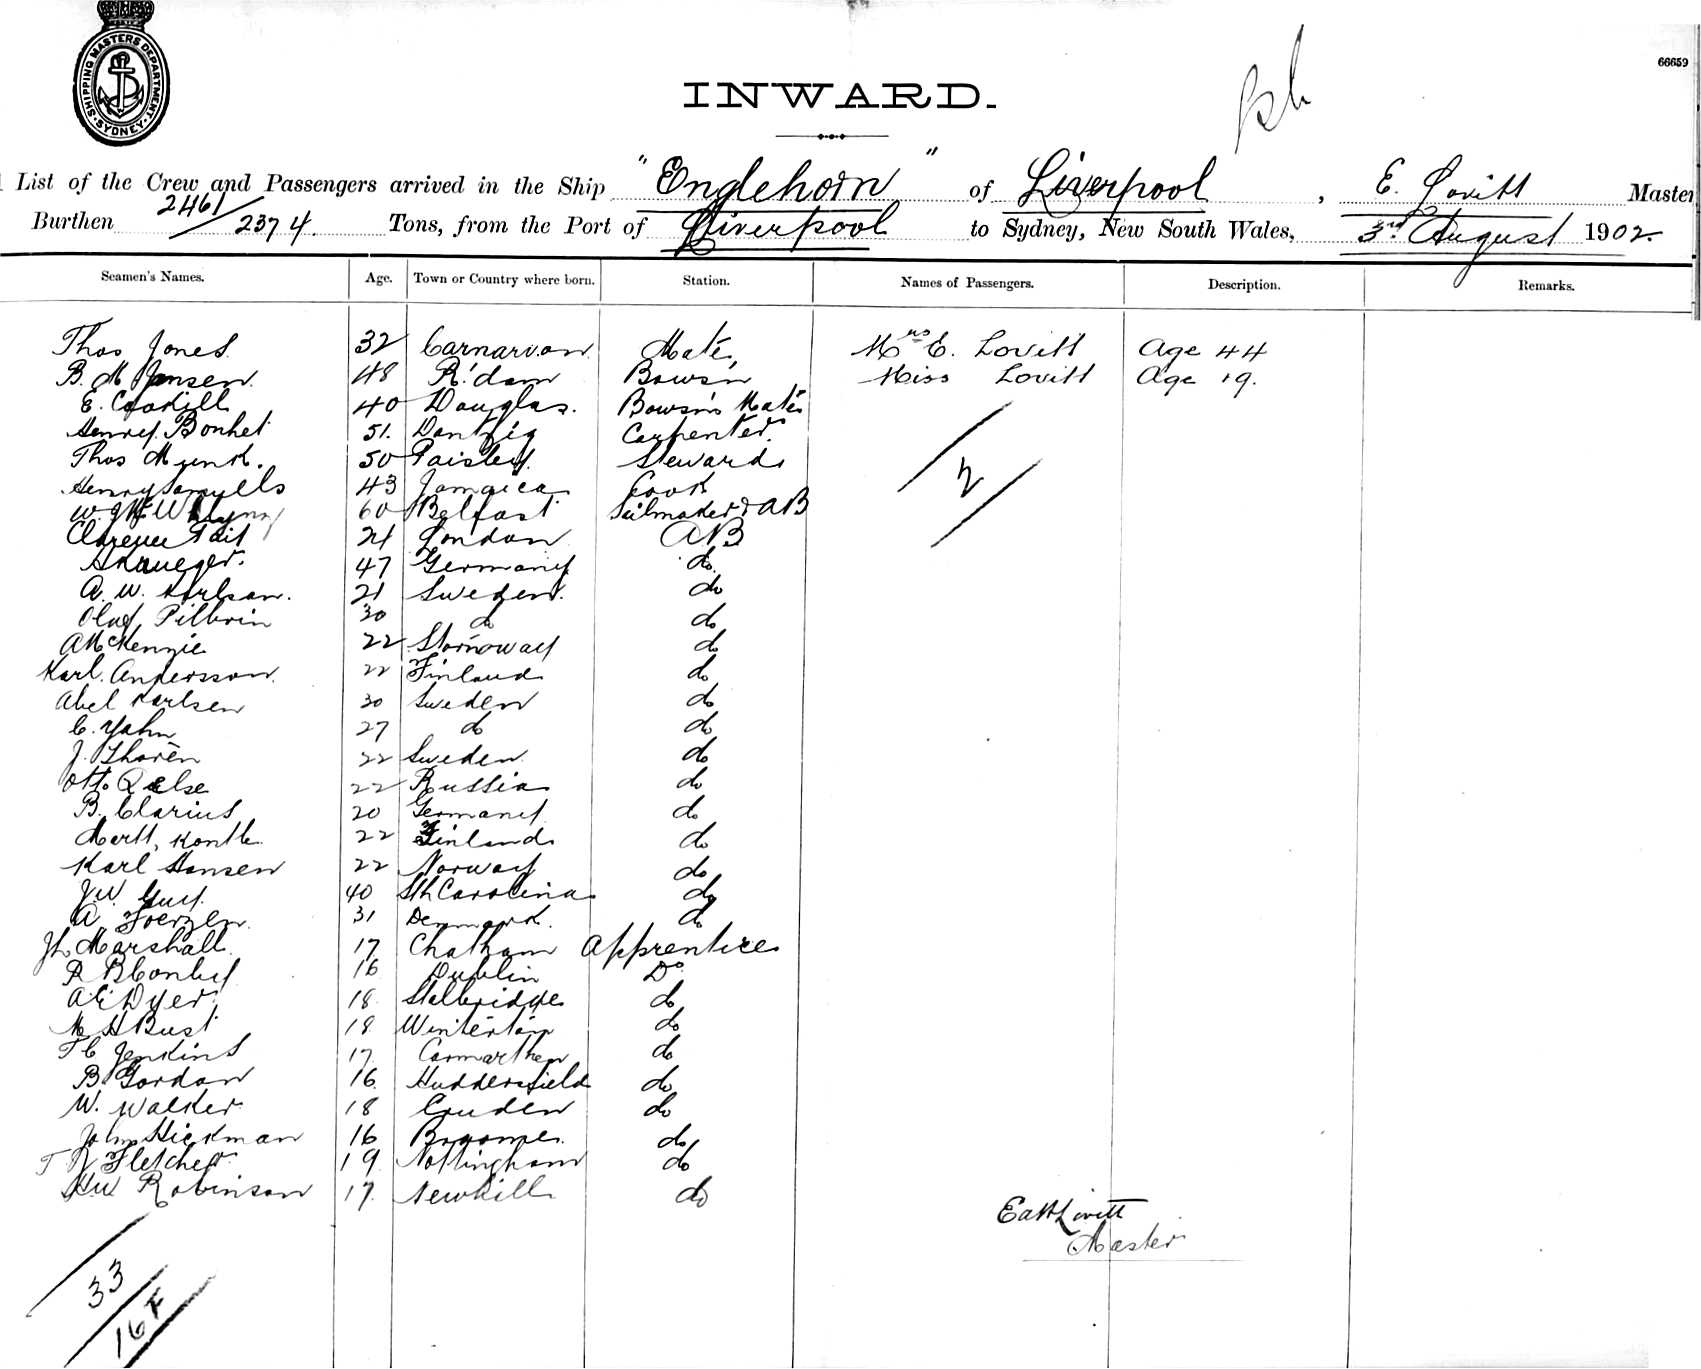 SHIPPING MASTERS DEPARTMENT. SYDNEY.
66659
INWARD.
List of the Crew and Passengers arrived in the Ship "Englehorn" of Liverpool, E. Lovitt Master
Burthen 2461/2374. Tons, from the Port of Liverpool to Sydney, New South Wales, 3rd August 1902.
Seamen's Names. Age. Town or Country where born. Station. Names of Passengers. Description. Remarks.
Thos Jones 32 Carnarvon Mate, Mrs E. Lovitt Age 44
B. M Jansen. 48 R'dam Bowsn Miss Lovitt Age 19.
E. 40 Douglas. Bowsn's Mate
Henry Bonhet 51. Dantzig Carpenter.
Thos Munk. 50 Paisley. Steward
Henry 43 Jamaica Cook
W. 60 Belfast Sailmaker & AB
2
Clarence Tait 21 London AB
A Krueger. 47 Germany do.
A. W. Karlson. 21 Sweden. do
Olaf Pilbrin 30 do do
A McKenzie 22 Stornoway do
Karl. Andersson. 22 Finland do
Abel Karlsen 30 Sweden do
C. Yahn 27 do do
J. Thorén 22 Sweden. do
Otto 22 Russia do
B. Clarius 20 Germany do
22 Finland do
Karl Hansen 22 Norway do
J.W. Guy. 40 Sth Carolina do
A 31 Denmark. do
Marshall. 17 Chatham Apprentice
R B Conley 16 Dublin Do
A E Dyer 18. Stalbridge do
M H Bust 18 Winterton do
T C Jenkins 17. Carmarthen do
B Gordon 16. Huddersfield do
W. Walker 18 Cruden do
John Hickman 16 Broome. do
T R Fletcher 19 Nottingham do
HW Robinson 17. Newhill do
Lovitt
Master
33
16 F